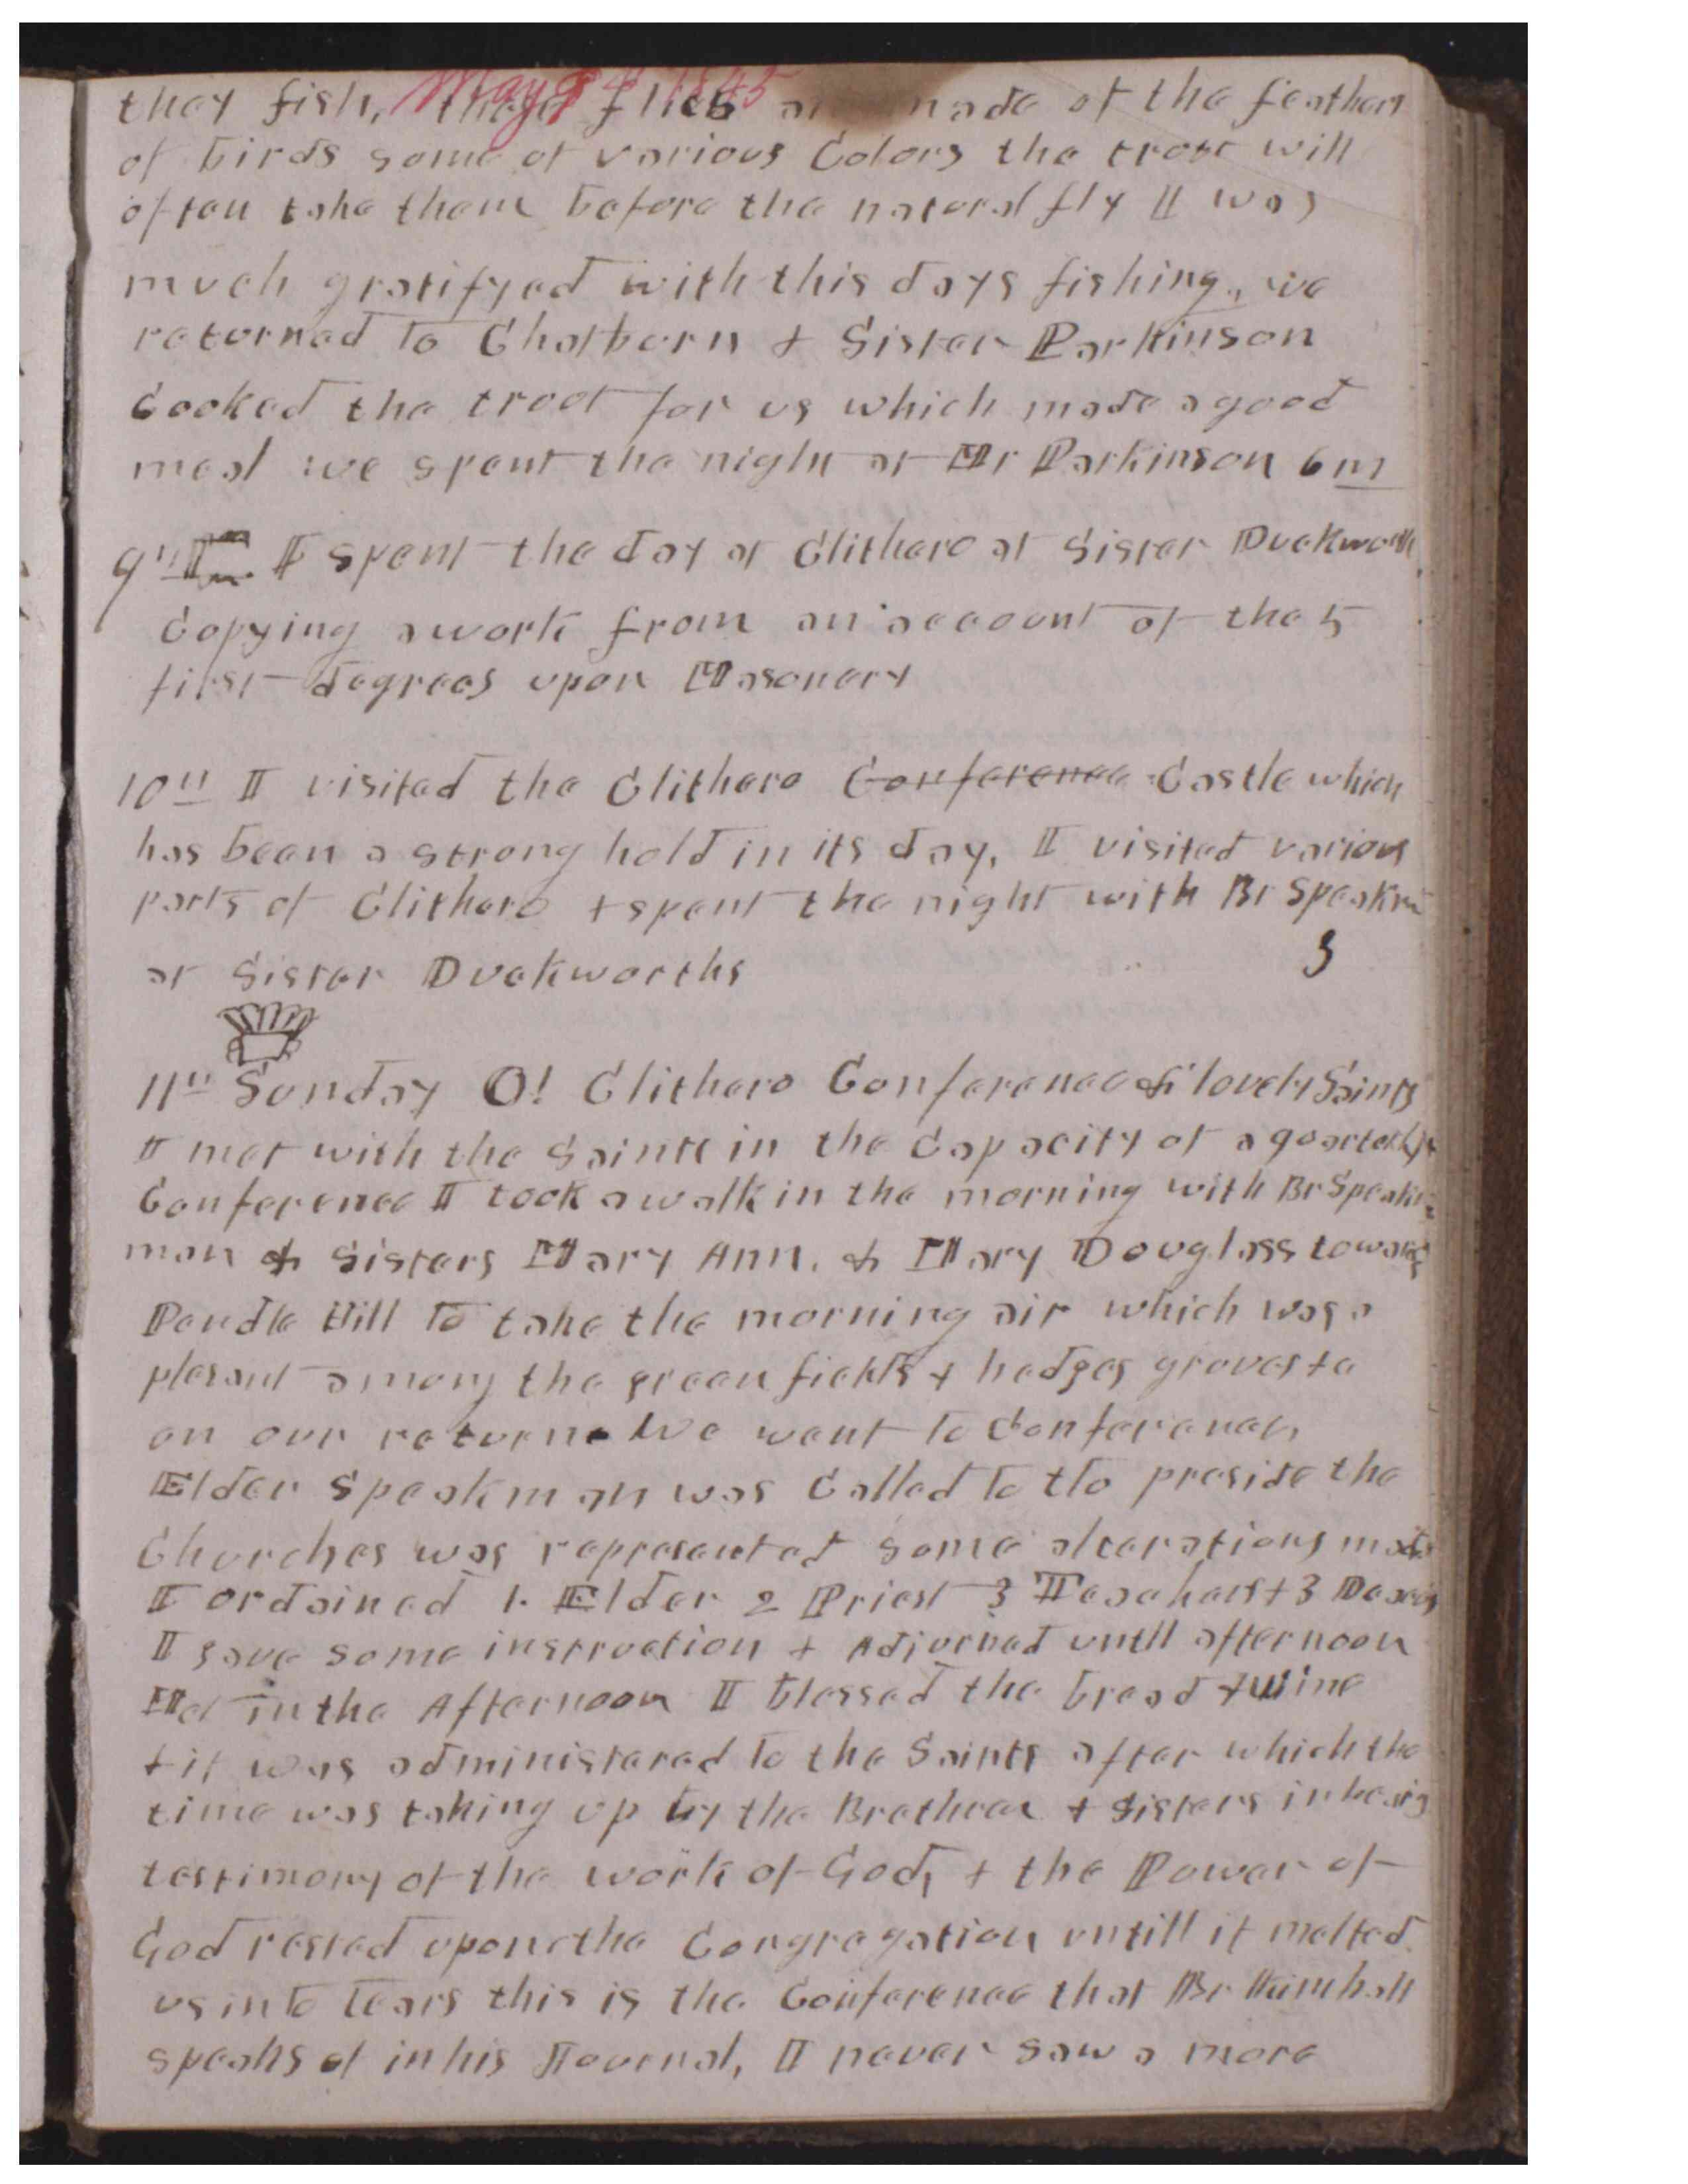 May 8th 1845
they fish, these flies are made of the feathers
of birds some of various Colors the trout will
often take them before the natural fly I was
much gratifyed with this days fishing, we
returned to Chatburn + Sister Parkinson
Cooked the trout for us which made a good
meal we spent the night at Mr Parkinson 6 m
9th I spent the day at Clithero at Sister Duckworth
Copying a work from an account of the 5
first degrees upon Masonery
10th I visited the Clithero Conference Castle which
has been a strong hold in its day, I visited various
parts of Clithero + spent the night with Br Speakman
at Sister Duckworths 3
11th Sunday O! Clithero Conference & lovely Saints
I met with the Saints in the Capacity of a quarterly
Conference I took a walk in the morning with Br Speak=
man & Sisters Mary Ann, & Mary Douglass towards
Pendle Hill to take the morning air which was a
plesant among the green fields + hedges groves +c
on our return We went to Conference,
Elder Speakman was Called to to preside the
Churches was represented some alterations made
I ordained 1 Elder 2 Priest 3 Teachers + 3 Deacons
I gave some instruction + Adjurned untll afternoon
Met in the Afternoon I blessed the bread + wine
+ it was administered to the Saints after which the
time was taking up by the Brethren + Sisters in bearing
testimony of the work of God, + the Power of
God rested upon the Congregation untill it melted
us into tears this is the Conference that Br Kimball
speaks of in his Journal, I never saw a more